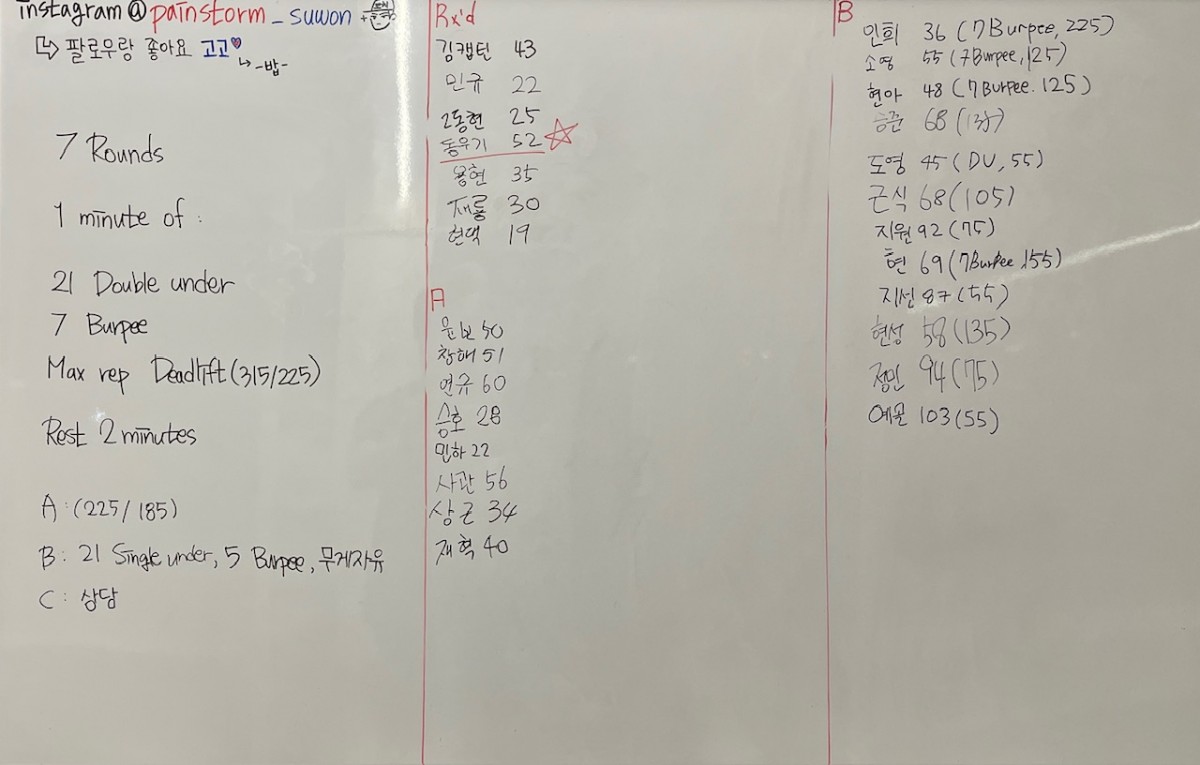 instagram @painstorm_suwon
팔로우랑 좋아요 고고
-밥-
7 Rounds
1 minute of :
21 Double under
7 Burpee
Max rep Deadlift (315/225)
Rest 2 minutes
A : (225/185)
B : 21 Single under, 5 Burpee, 무게자유
C : 상담
Rx'd
김캡틴 43
민규 22
2동현 25
동우기 52
용현 35
재룡 30
현액 19
A
윤보 50
창해 51
연규 60
승호 28
민하 22
사관 56
상근 34
재혁 40
B
인희 36 (7 Burpee, 225)
소영 55 (7 Burpee, 125)
현아 48 (7 Burpee. 125)
승준 68
도영 45 (DU, 55)
근식 68 (105)
지원 92 (75)
현 69 (7 Burpee, 155)
지선 87 (55)
현성 58 (135)
정민 94 (75)
예을 103 (55)